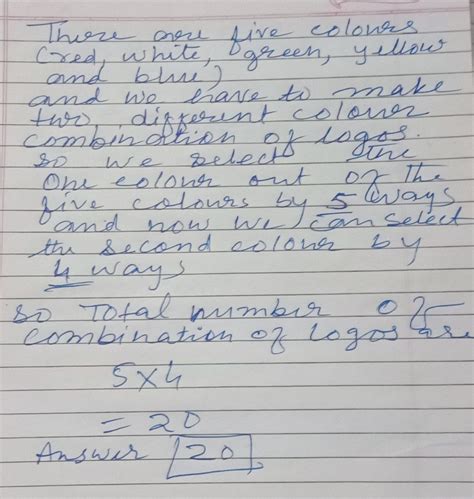 There are five colours
(red, white, green, yellow
and blue)
and we have to make
two different colour
combination of logos.
so we select the
One colour out of the
five colours by 5 ways
and now we can select
the second colour by
4 ways
so Total number of
combination of logos are
5×4
= 20
Answer 20